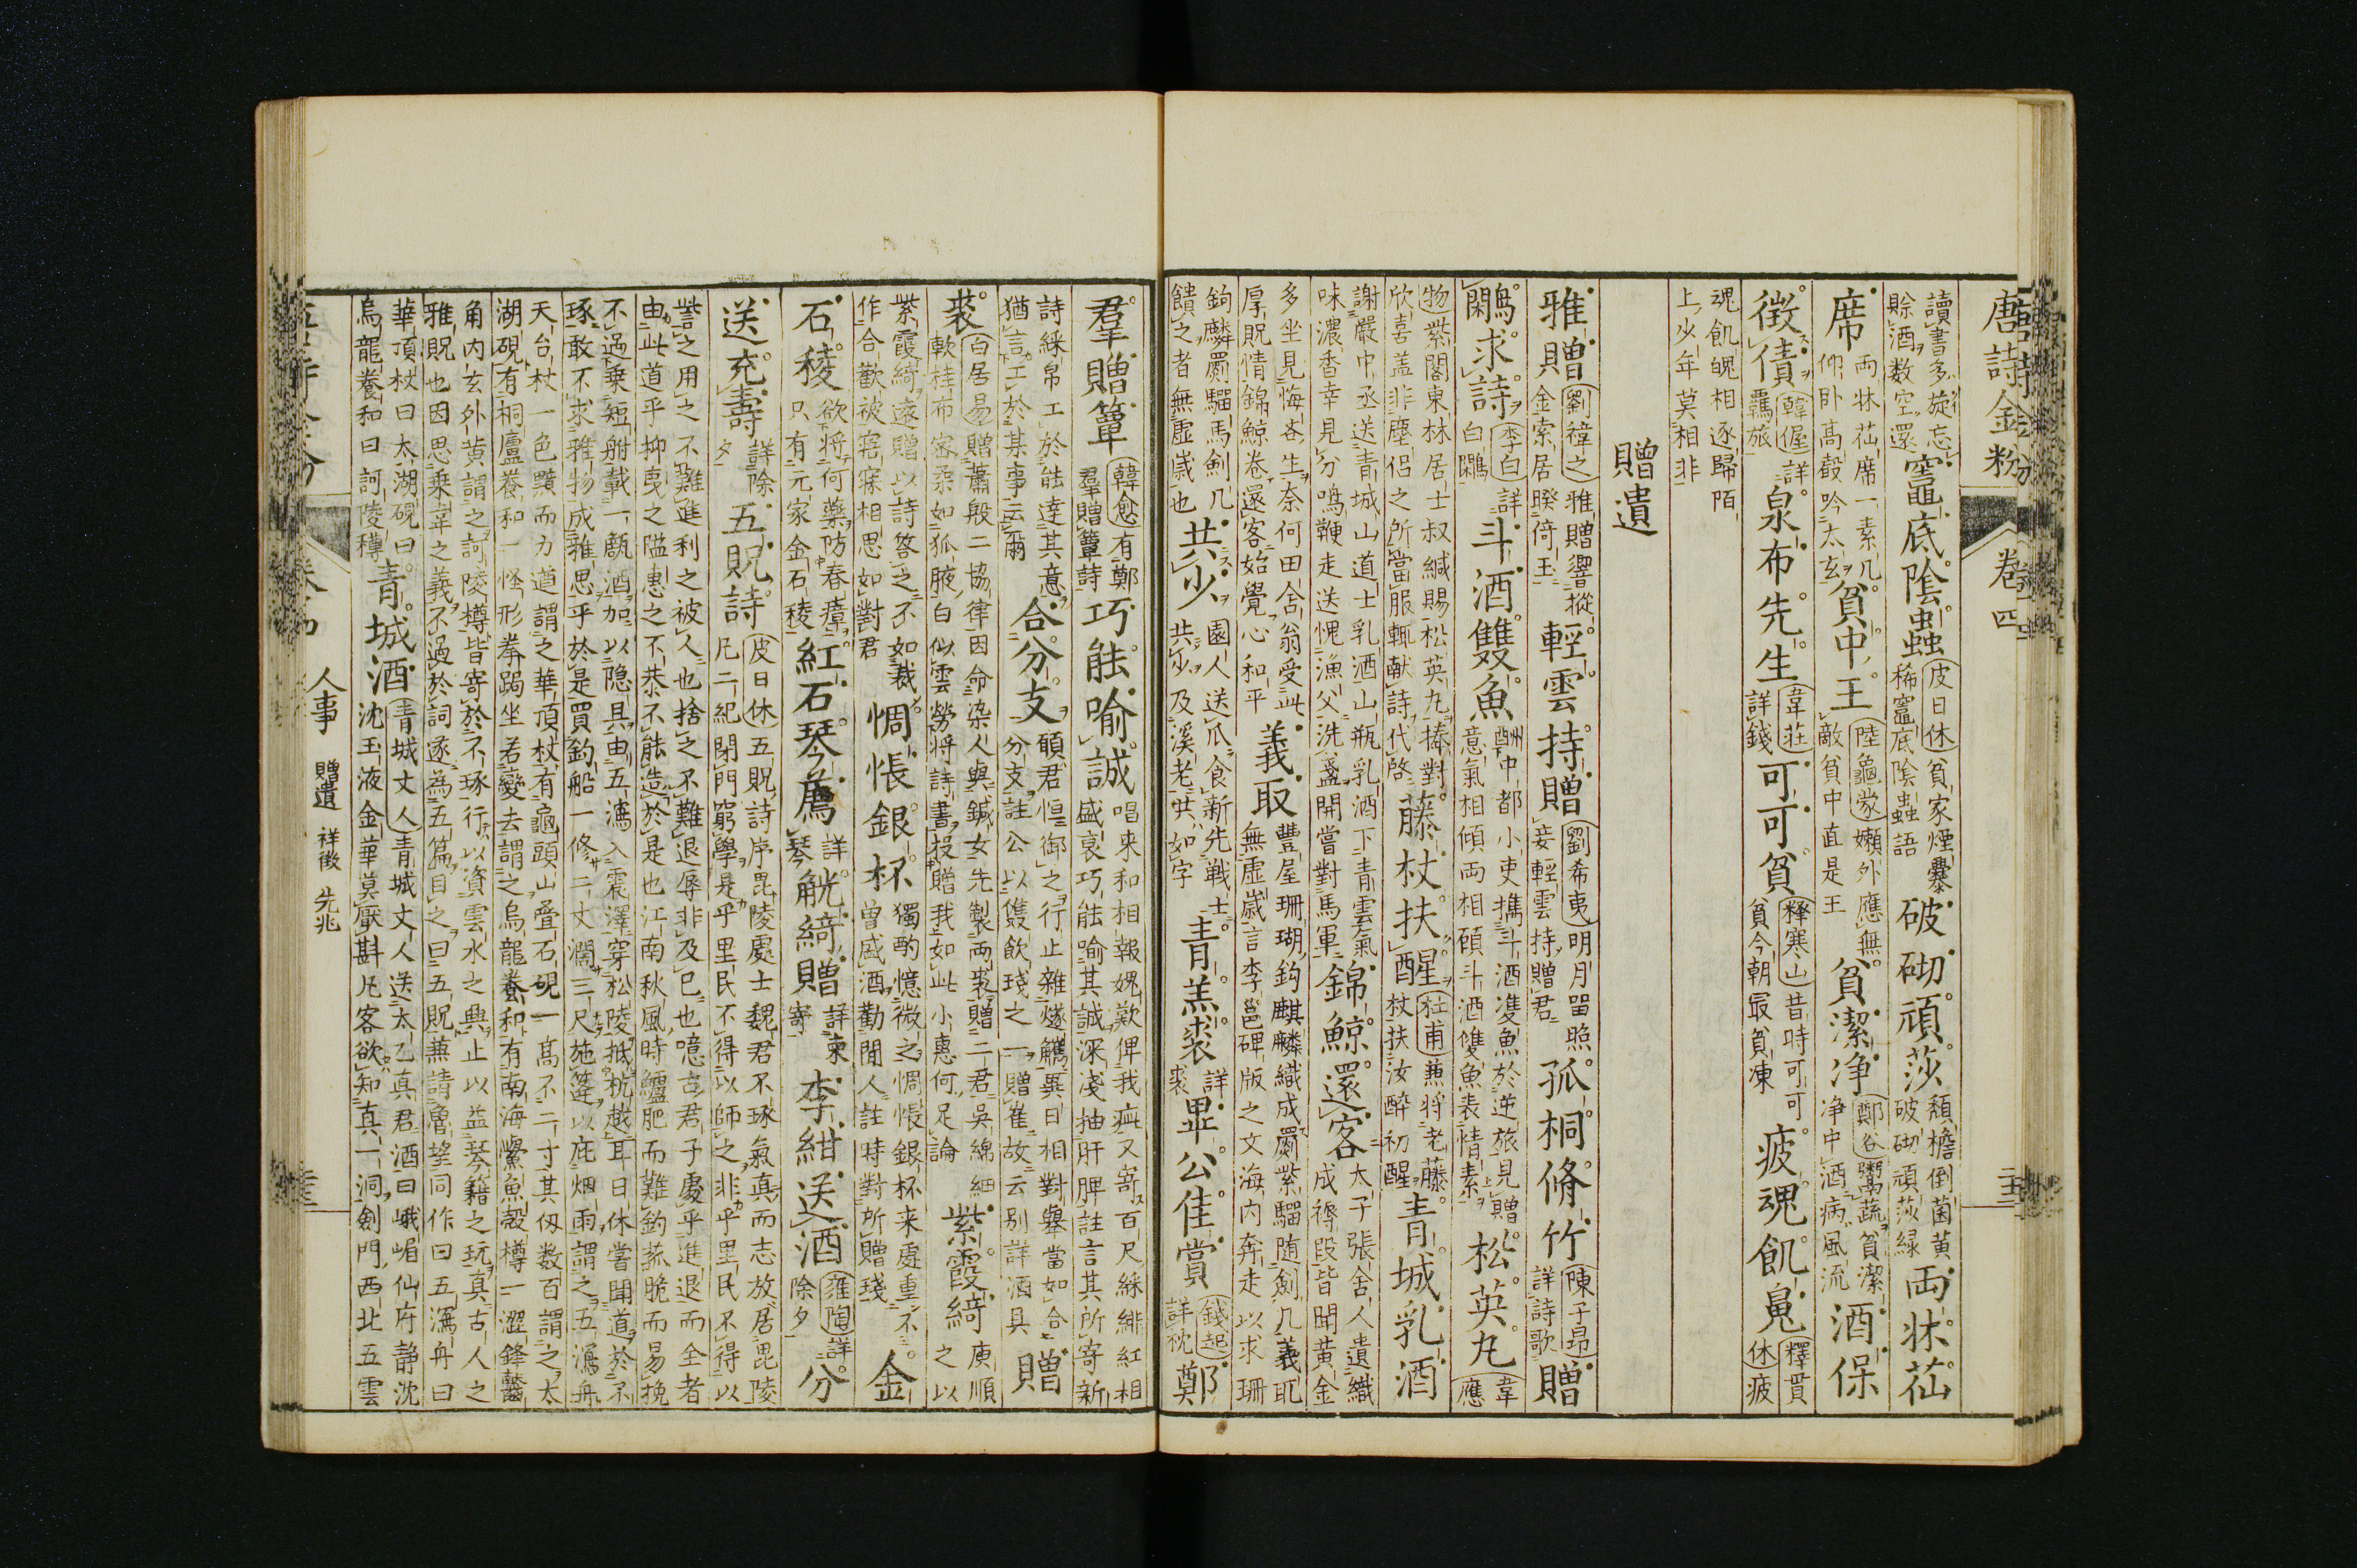 唐詩金粉　卷四
讀書多旋忘
賖酒数空還
竈底陰蟲
皮日休貧家煙爨
稀竈底陰蟲語
破砌頑莎
頹檐倒菌黄
破砌頑莎緑
両牀苮
席
両牀苮席一素几
仰卧高聲吟太玄
貧中王
陸龜蒙嬾外應無
敵貧中直是王
貧潔浄
鄭谷鬻蔬貧潔
浄中酒病風流
酒保
徴債
韓偓詳
羈旅
泉布先生
韋莊
詳錢
可可貧
釋寒山昔時可可
貧今朝最貧凍
疲魂飢鬼
釋貫
休疲
魂飢魄相逐歸陌
上少年莫相非
贈遺
雅贈
劉禕之雅贈響摐
金索居暌倚玉
輕雲持贈
劉希夷明月留照
妾輕雲持贈君
孤桐脩竹
陳子昂
詳詩歌
贈
鷴求詩
李白詳
白鷴
斗酒雙魚
酬中都小吏攜斗酒雙魚於逆旅見贈
意氣相傾両相頋斗酒雙魚表情素
松英丸
韋
應
物紫閣東林居士叔緘賜松英丸捧對
欣喜盖非塵侣之所當服輒献詩代啓
藤杖扶醒
杜甫兼将老藤
杖扶汝醉初醒
青城乳酒
謝嚴中丞送青城山道士乳酒山瓶乳酒下青雲氣
味濃香幸見分鳴鞭走送憐漁父洗盞開嘗對馬軍
錦鯨還客
太子張舎人遺織
成褥段皆聞黄金
多坐見悔吝生奈何田舎翁受此
厚貺情錦鯨巻還客始覺心和平
義取
豐屋珊瑚鈎麒麟織成罽紫騮随劍几義取
無虚歳言李邕碑版之文海内奔走以求珊
鉤麟罽騮馬劍几
饋之者無虚歳也
共少
園人送瓜食新先戦士
共少及溪老共如字
青羔裘
詳
裘
畢公佳賞
錢起
詳枕
鄭
羣贈簟
韓愈有鄭
羣贈簟詩
巧能喻誠
唱来和相報媿歎俾我疵又寄百尺綵緋紅相
盛衰巧能喻其誠深淺抽肝脾註言其所寄新
詩綵帛工於能達其意
猶言工於某事云爾
合分支
頋君恒御之行止雜燧觿異日相對舉當如合
分支註公以隻飲㻇之一贈崔故云别詳酒具
贈
裘
白居易贈蕭殷二協律因命染人與鍼女先製両裘贈二君吳綿細
軟桂布密柔如狐腋白似雲勞将詩書投贈我如此小惠何足論
紫霞綺
庾順
之以
紫霞綺遠贈以詩答之不如裁
作合歡被寤寐相思如對君
惆悵銀杯
獨酌憶微之惆悵銀杯来處重不
曾盛酒勸閒人註時對所贈㻇
金
石稜
欲将何藥防春瘴
只有元家金石稜
紅石琴薦
詳
琴
觥綺贈
詳柬
寄
李紺送酒
雍陶詳
除夕
分
送充壽
詳除
夕
五貺詩
皮日休五貺詩序毘陵處士魏君不琢氣真而志放居毘陵
凡二紀閉門窮學是乎里民不得以師之非乎里民不得以
訾之用之不難進利之被人也捨之不難退辱非及巳也噫古君子處乎進退而全者
由此道乎抑夷之隘惠之不恭不能造於是也江南秋風時鱸肥而難釣菰脆而易挽
不過乗短舼載一甒酒加以隠具由五瀉入震澤穿松陵抵杭越耳日休嘗聞道於不
琢敢不求雅物成雅思乎於是買釣船一修二丈濶三尺施篷以庇烟雨謂之五瀉舟
天台杖一色黯而力遒謂之華頂杖有龜頭山疊石硯一髙不二寸其仭数百謂之太
湖硯有桐廬養和一怪形拳跼坐若變去謂之烏龍養和有南海鱟魚殻樽一澀鋒齾
角内玄外黄謂之訶陵樽皆寄於不琢行以資雲水之興止以益琴籍之玩真古人之
雅貺也因思乗韋之義不過於詞遂為五篇目之曰五貺兼請魯望同作曰五瀉舟曰
華頂杖曰太湖硯曰
烏龍養和曰訶陵樽
青城酒
青城丈人青城丈人送太乙真君酒曰峨嵋仙府静沈
沈玉液金華莫厭斟凡客欲知真一洞劍門西北五雲
人事　贈遺　祥徴　先兆